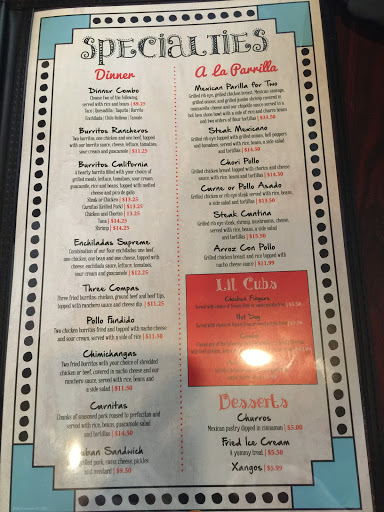 SPECIALTIES
Dinner
Dinner Combo
Choose two of the following,
served with rice and beans | $9.25
Taco | Quesadilla | Taquito | Burrito
Enchilada | Chile Relleno | Tamale
Burritos Rancheros
Two burritos, one chicken and one beef, topped
with our burrito sauce, cheese, lettuce, tomatoes,
sour cream and guacamole | $11.25
Burritos California
A hearty burrito filled with your choice of
grilled meats, lettuce, tomatoes, sour cream,
guacamole, rice and beans, topped with melted
cheese and pico de gallo
Steak or Chicken | $13.25
Carnitas (Grilled Pork) | $13.25
Chicken and Chorizo | 13.25
Tuna | $14.25
Shrimp | $14.25
Enchiladas Supreme
Combination of our four enchiladas: one beef,
one chicken, one bean and one cheese, topped with
cheese, enchilada sauce, lettuce, tomatoes,
sour cream and guacamole | $12.25
Three Compas
Three fried burritos: chicken, ground beef and beef tips,
topped with ranchero sauce, served with rice
and beans | $11.25
Pollo Fundido
Two chicken burritos fried and topped with nacho cheese
and sour cream, served with a side of rice | $11.50
Chimichangas
Two fried burritos with your choice of shredded
chicken or beef, covered in nacho cheese and our
ranchero sauce, served with rice, beans and
a side salad | $11.50
Carnitas
Chunks of seasoned pork roasted to perfection and
served with rice, beans, guacamole salad
and tortillas | $14.50
Cuban Sandwich
Grilled pork, swiss cheese, pickles
and mustard | $9.50
A La Parrilla
Mexican Parilla for Two
Grilled rib eye, grilled chicken breast, Mexican sausage,
grilled onions, and grilled jumbo shrimp covered in
mozzarella cheese and our chipotle sauce served in a
hot lava stone bowl with a side of rice and charro beans
and two orders of flour tortillas | $33.50
Steak Mexicano
Grilled rib eye topped with grilled onions, bell peppers
and tomatoes, served with rice, beans, a side salad
and tortillas | $14.50
Chori Pollo
Grilled chicken breast topped with chorizo and cheese
sauce, with rice, beans and tortillas | $14.50
Carne or Pollo Asado
Grilled chicken or rib eye steak served with rice, beans,
a side salad and tortillas | $13.50
Steak Cantina
Grilled rib eye steak, shrimp, mushrooms, cheese,
served with rice, beans, a side salad
and tortillas | $15.50
Arroz Con Pollo
Grilled chicken breast and rice topped with
nacho cheese sauce | $11.99
Lil Cubs
Chicken Fingers
Hot Dog
Desserts
Churros
Mexican pastry dipped in cinnamon | $5.00
Fried Ice Cream
A yummy treat. | $5.50
Xangos | $5.99